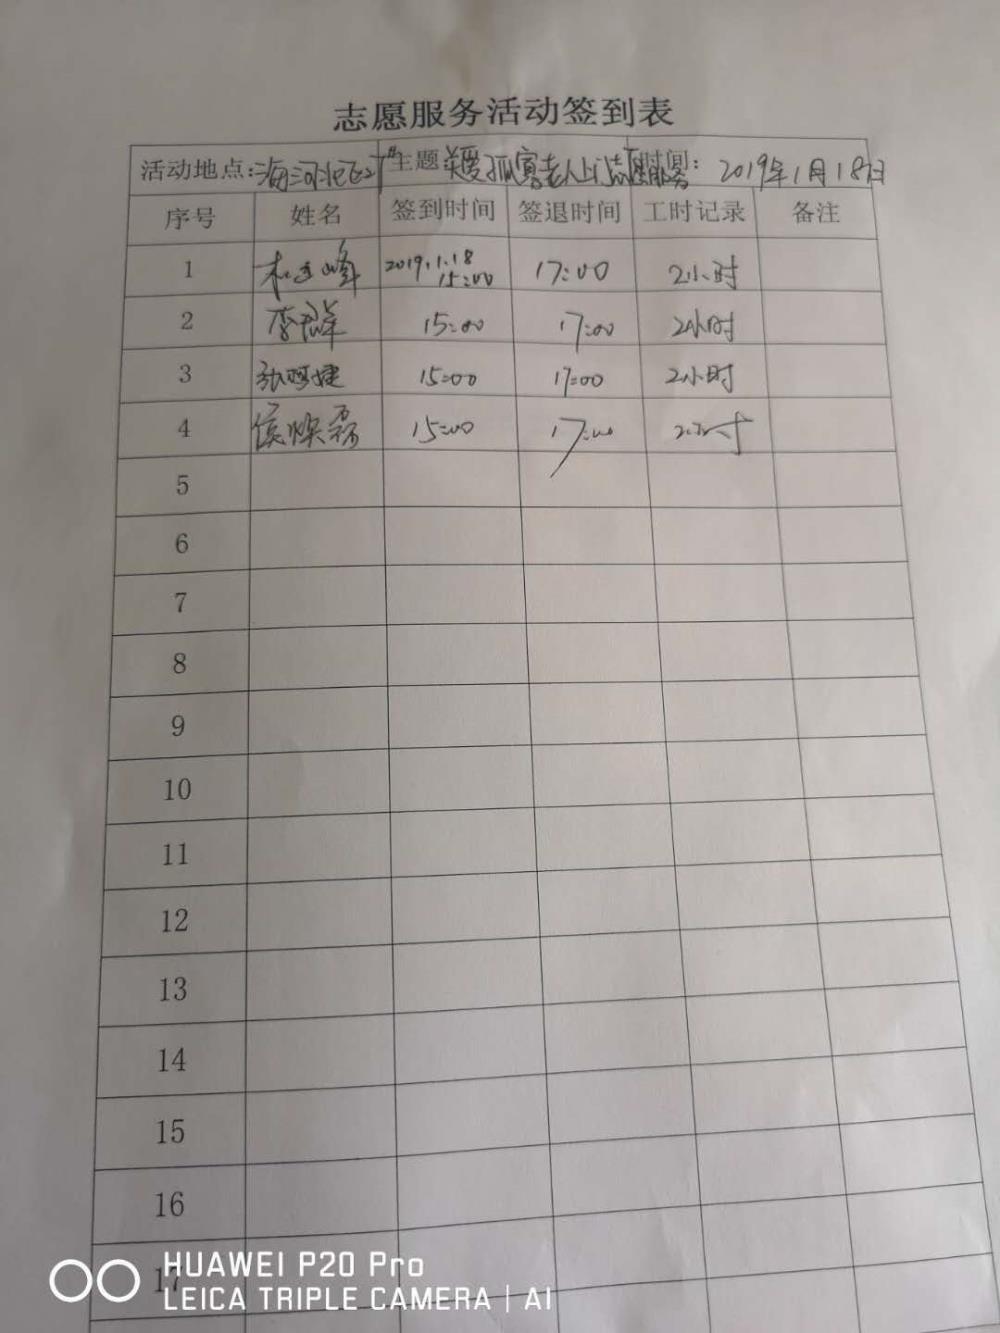 志愿服务活动签到表
活动地点: 主题 关爱孤寡老人 志愿服务 时间: 2019年1月18日
序号 姓名 签到时间 签退时间 工时记录 备注
1 2019.1.18 15:00 17:00 2小时
2 15:00 17:00 2小时
3 15:00 17:00 2小时
4 侯 磊 15:00 17:00 2小时
5
6
7
8
9
10
11
12
13
14
15
16
17
HUAWEI P20 Pro
LEICA TRIPLE CAMERA | AI